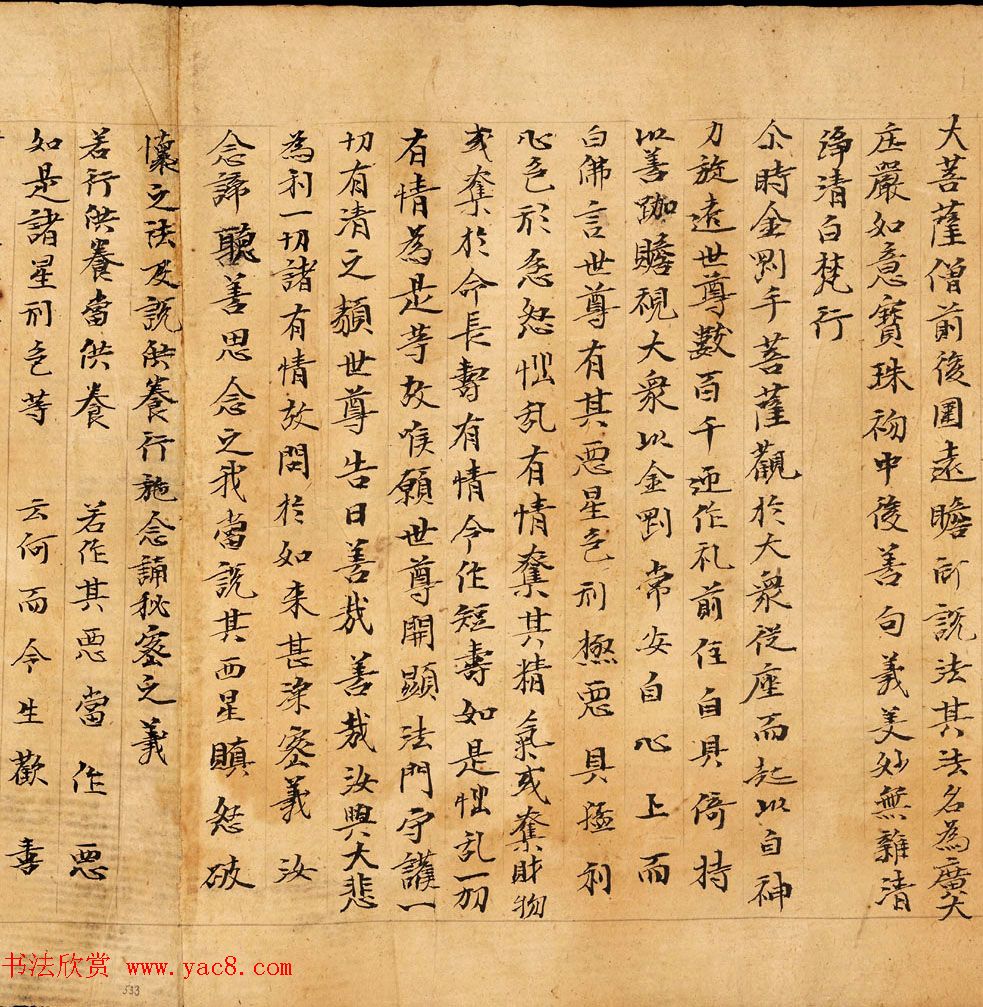 大菩薩僧前後圍遶瞻所說法其法名為廣大
庄嚴如意寶珠初中後善句義美妙無雜清
淨清白梵行
尒時金剛手菩薩觀於大衆從座而起以自神
力旋遶世尊數百千迊作礼前住自具倚持
以善跏瞻視大衆以金剛常安自心上而
白佛言世尊有其惡星色刑極惡具猛利
心色形忿怒惱乱有情奪其精氣或奪財物
或奪於命長壽有情令作短壽如是惱乱一切
有情為是等故唯願世尊開顯法門守護一
切有清之類世尊告曰善哉善哉汝興大悲
為利一切諸有情故問於如來甚深密義汝
念諦聽善思念之我當說其西星瞋怒破
懷之法及說供養行施念誦秘密之義
若行供養當供養 若作其惡當作惡
如是諸星刑色等 云何而令生歡喜
书法欣赏 www.yac8.com
533